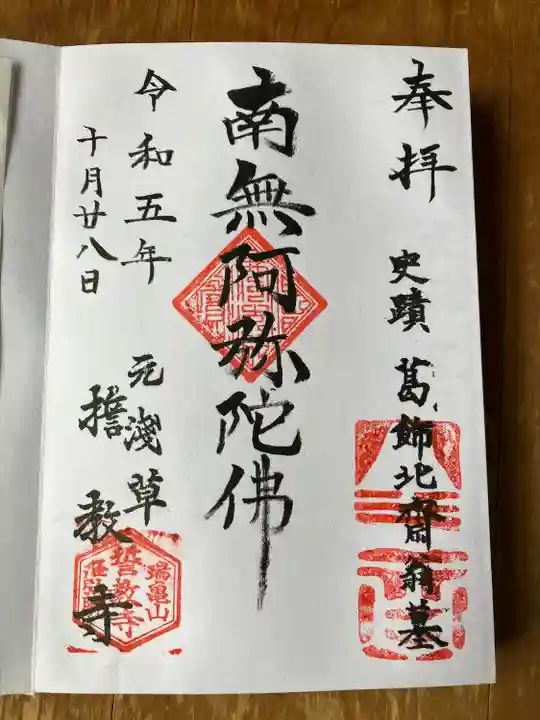 奉拝
史蹟 葛飾北齋翁墓
南無阿弥陀佛
令和五年
十月廿八日
元浅草
誓教寺
瑞亀山
誓教寺